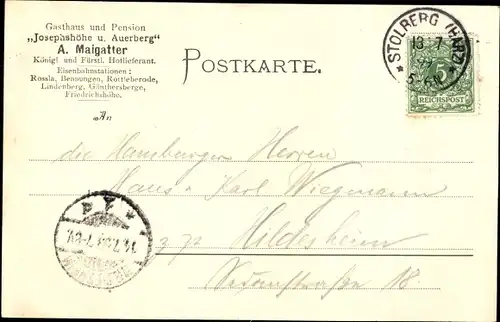 Gasthaus und Pension
„Josephshöhe u. Auerberg"
A. Maigatter
Königl und Fürstl. Hoflieferant.
Eisenbahnstationen:
Rossla, Bennungen, Rottleberode,
Lindenberg, Günthersberge,
Friedrichshöhe.
POSTKARTE.
STOLBERG (HARZ)
13 7
99
REICHSPOST
An
die Hamburger Herren
Hans u. Karl Wiegmann
z. Zt. Hildesheim
Sedanstrasse 18.